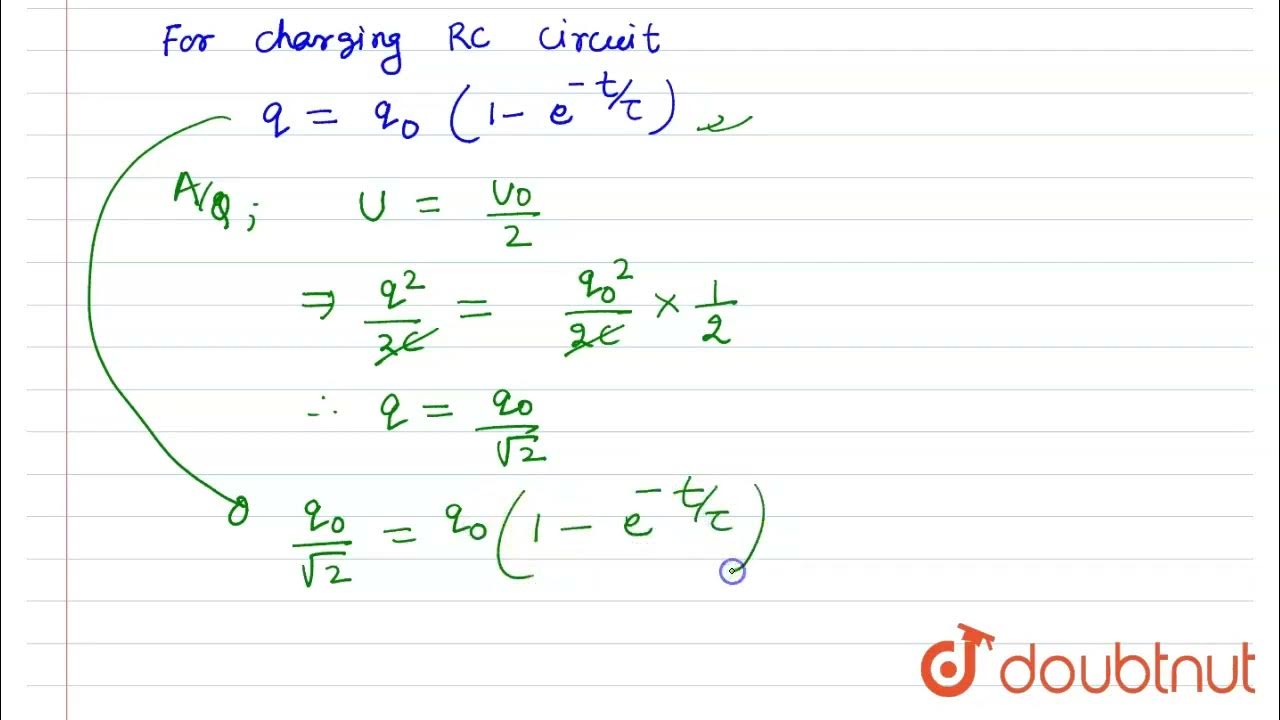 For charging RC circuit
q = q₀ (1 - e^(-t/τ))
A/Q; U = U0/2
⇒ q²/2C = q₀²/2C × 1/2
∴ q = q₀/√2
q₀/√2 = q₀ (1 - e^(-t/τ))
doubtnut